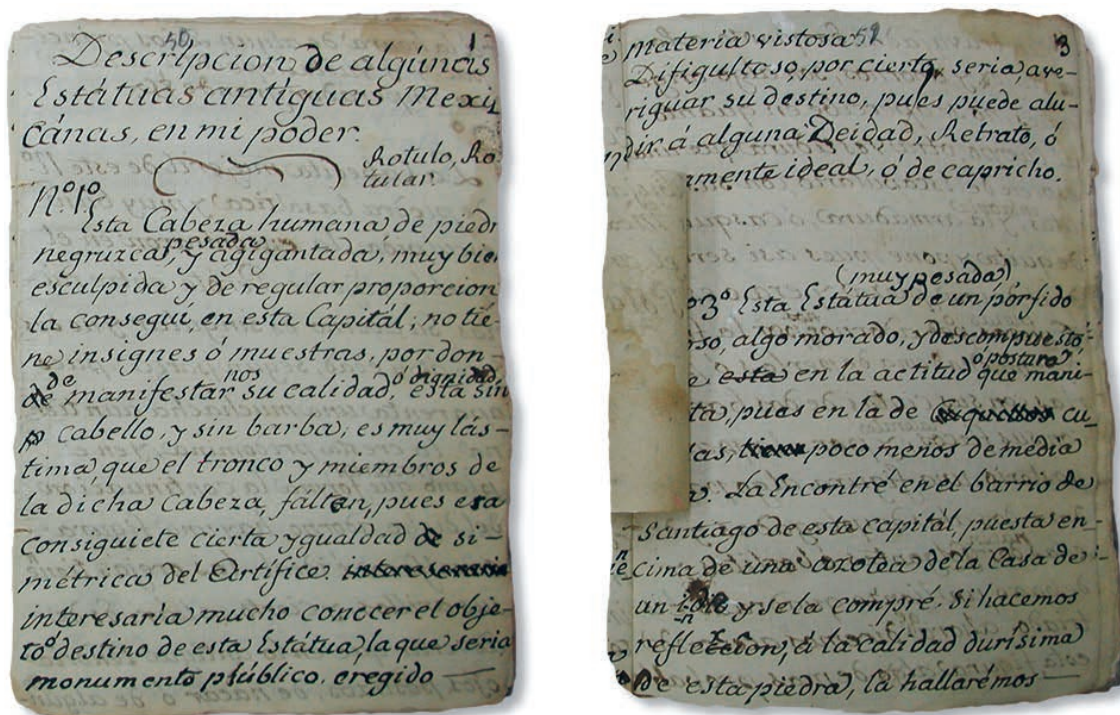 50 1
Descripcion de algúnas
Estátuas antiguas Mexi
cánas, en mi poder.
Rotulo, Ro
tular.
Nº.1º.
Esta Cabeza humana de piedr
pesada
negruzca, y agigantada, muy bien
esculpida y de regular proporcion
la consegui, en esta Capitál; no tie-
ne insignes ó muestras, por don-
de manifestar nos su calidad, ó dignidad, esta sin
cabello, y sin barba, es muy lás-
tima que el tronco y miembros de
la dicha Cabeza, fálten, pues era
consiguiete cierta ygualdad de si-
métrica del Artífice.
interesaria mucho conocer el obje-
to ó destino de esta Estátua, la que seria
monumento público, eregido
52 3
materia vistosa
Difigultoso, por cierto, seria, ave-
riguar su destino, pues puede alu-
dir á alguna Deidad, Retrato, ó
amente ideal, ó de capricho.
(muy pesada)
3º Esta Estátua de un pórfido
so, algo morado, y descompuesto
o postura
esta en la actitud que mani
ta, pues en la de cu-
las, poco menos de media
La Encontré en el barrio de
Santiago de esta capitál, puesta en-
cima de una azotda de la Casa de
un y se la compré. Si hacemos
refleccion, á la calidad durísima
de esta piedra, la hallarémos